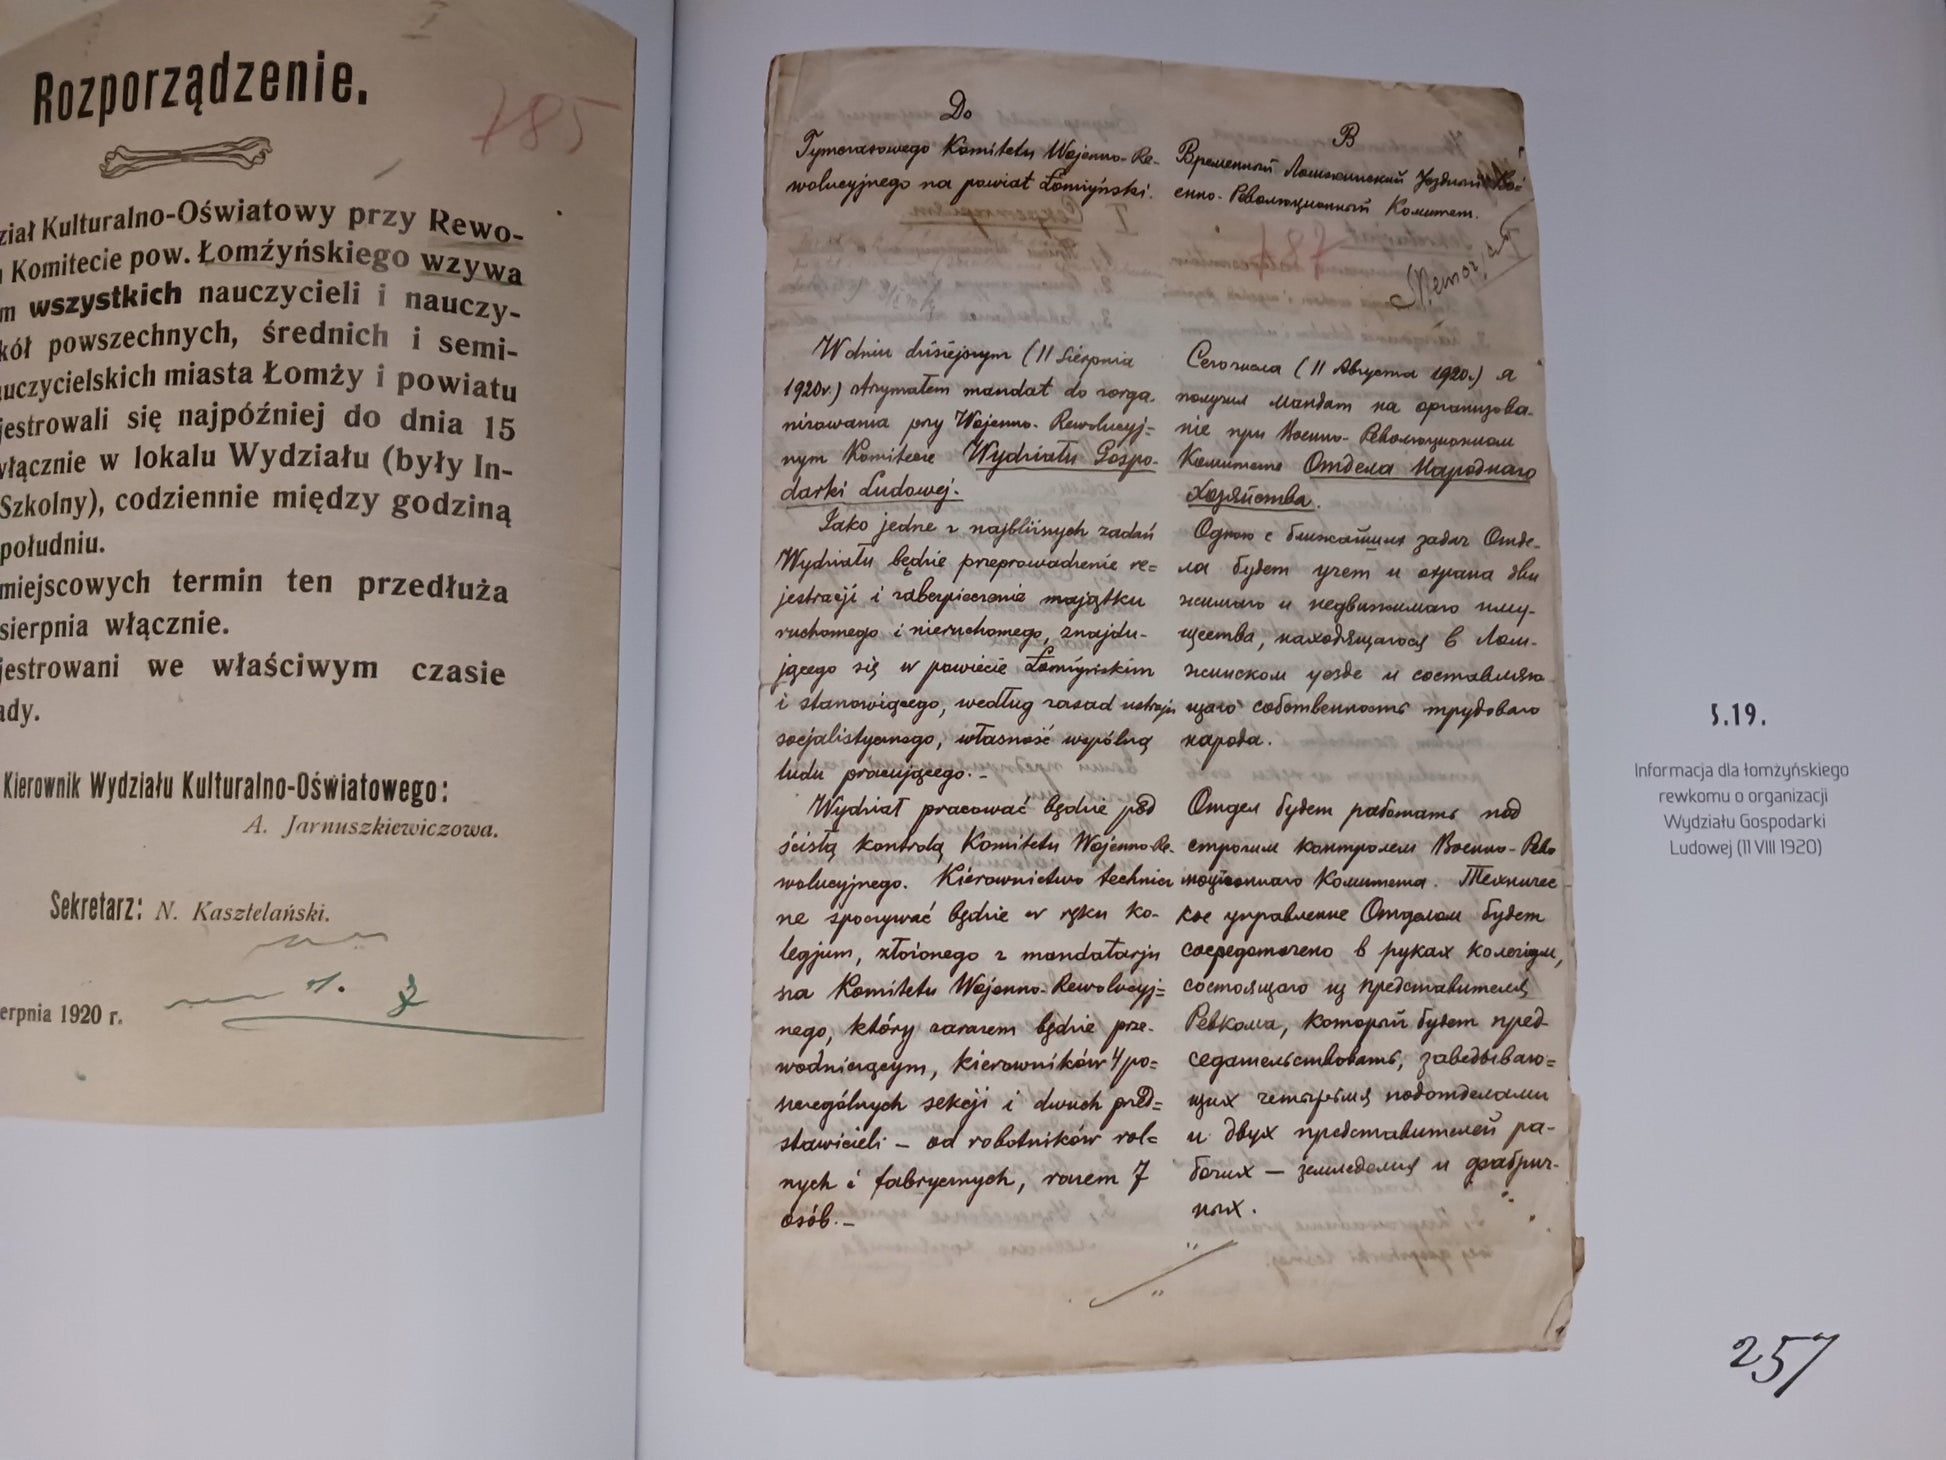 Rozporządzenie.
185
ział Kulturalno-Oświatowy przy Rewo-
Komitecie pow. Łomżyńskiego wzywa
m wszystkich nauczycieli i nauczy-
kół powszechnych, średnich i semi-
uczycielskich miasta Łomży i powiatu
jestrowali się najpóźniej do dnia 15
włącznie w lokalu Wydziału (były In-
Szkolny), codziennie między godziną
południu.
miejscowych termin ten przedłuża
sierpnia włącznie.
jestrowani we właściwym czasie
ady.
Kierownik Wydziału Kulturalno-Oświatowego:
A. Jarnuszkiewiczowa.
Sekretarz: N. Kasztelański.
erpnia 1920 r.
Do
Tymczasowego Komitetu Wojenno-Re-
wolucyjnego na powiat Łomżyński.
W dniu dzisiejszym (11 Sierpnia
1920r.) otrzymałem mandat do zorga
nizowania przy Wojenno-Rewolucyj=
nym Komitecie Wydziału Gospo-
darki Ludowej.
Jako jedne z najbliższych zadań
Wydziału będzie przeprowadzenie re=
jestracji i zabezpieczenie majątku
ruchomego i nieruchomego, znajdu-
jącego się w powiecie Łomżyńskim
i stanowiącego, według zasad ustroju
socjalistycznego, własność wspólną
ludu pracującego.-
Wydział pracować będzie pod
ścisłą kontrolą Komitetu Wojenno-Re-
wolucyjnego. Kierownictwo technicz
ne spoczywać będzie w ręku ko-
legjum, złożonego z mandatarju
sza Komitetu Wojenno-Rewolucyj=
nego, który zarazem będzie prze-
wodniczącym, kierowników 4 po=
szczególnych sekcji i dwuch pred=
stawicieli – od robotników rol=
nych i fabrycznych, razem 7
osób.-
В
Временный Ломжинский Уездный Во
енно-Революционный Комитет.
187
Memorjał
Сегодня (11 Августа 1920г.) я
получил мандат на организова-
ние при Военно-Революционном
Комитете Отдела Народнаго
Хозяйства.
Одною с ближайших задач Отде-
ла будет учет и охрана дви
жимаго и недвижимаго иму-
щества, находящагося в Лом-
жинском уезде и составляю
щаго собственность трудоваго
народа.
Отдел будет работать под
строгим контролем Военно-Рево
люционнаго Комитета. Техничес-
кое управление Отделом будет
сосредоточено в руках колегии,
состоящаго из представителя
Ревкома, который будет пред-
седательствовать, заведываю=
щих четырьмя подотделами
и двух представителей ра-
бочих — земледелия и фабрич-
ных.
5.19.
Informacja dla łomżyńskiego
rewkomu o organizacji
Wydziału Gospodarki
Ludowej (11 VIII 1920)
257